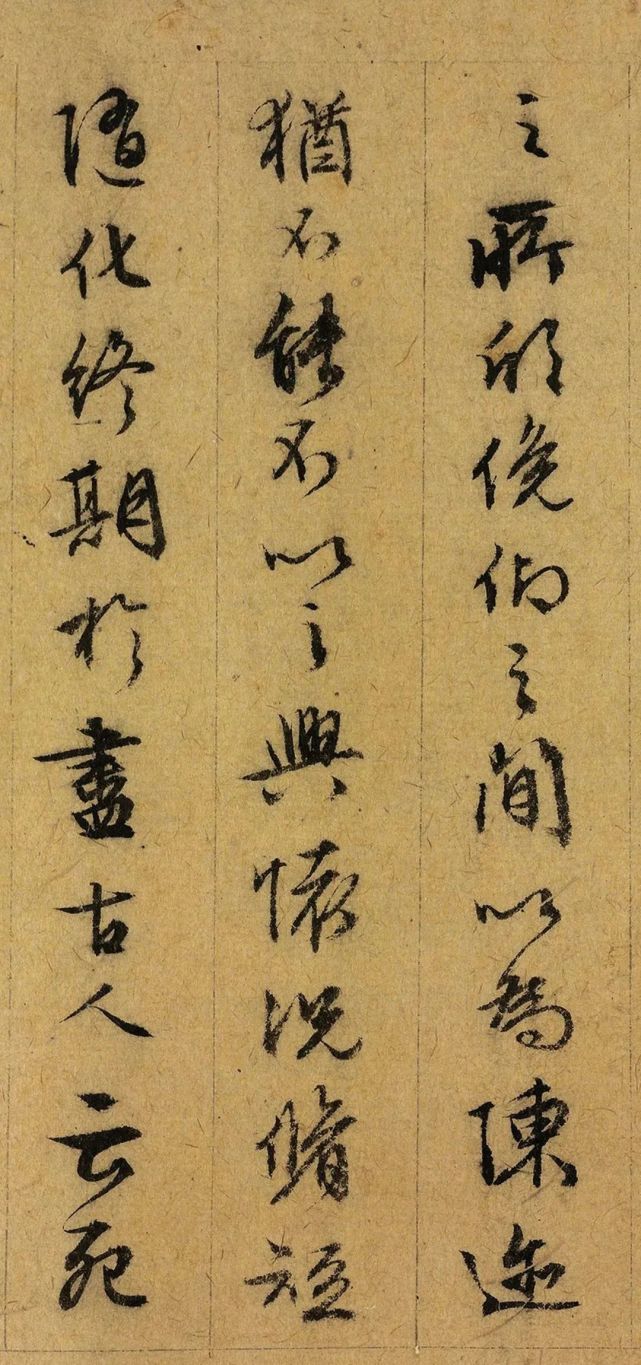 之所欣俛仰之間以為陳迹
猶不能不以之興懷況脩短
隨化終期於盡古人云死